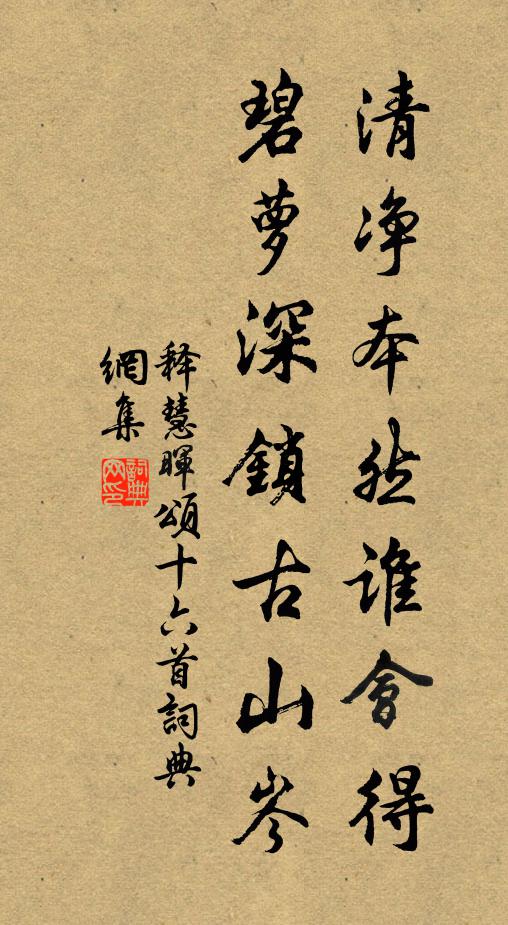 清净本然谁會得
碧萝深鎖古山岑
释慧暉頌十六首詞典
網集
詞典
网印